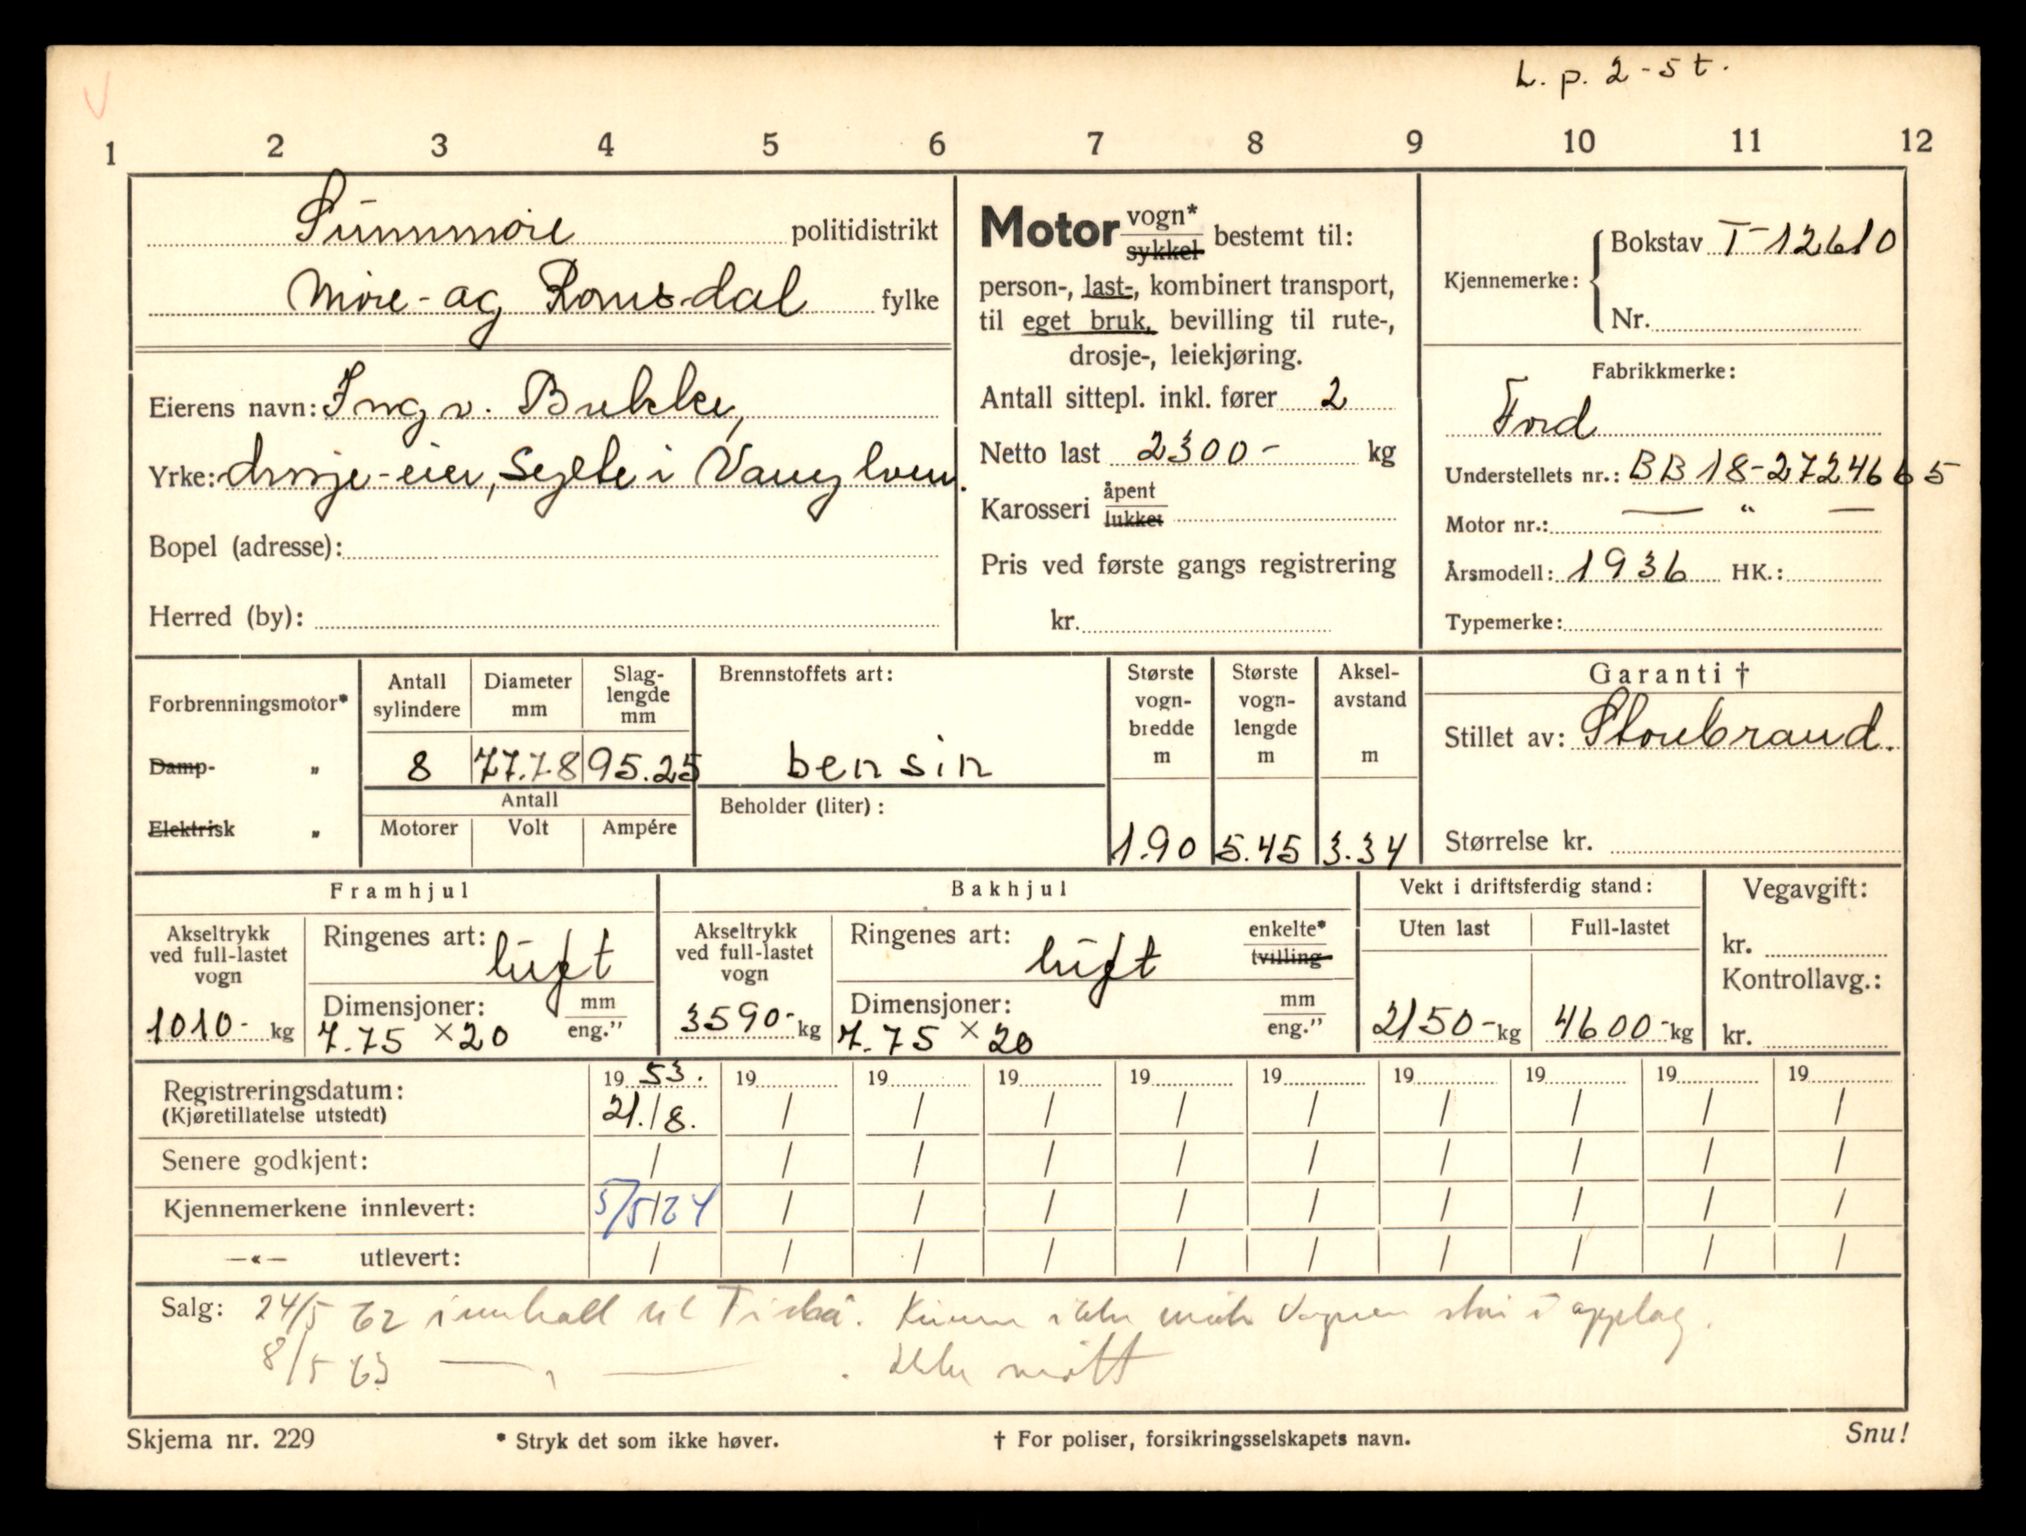 L. p. 2-5 t.
1 2 3 4 5 6 7 8 9 10 11 12
Sunnmøre politidistrikt
Møre- og Romsdal fylke
Eierens navn: Ingv. Brekke,
Yrke: drosje-eier, Sylte i Vanylven.
Bopel (adresse):
Herred (by):
Motor vogn* sykkel bestemt til:
person-, last-, kombinert transport,
til eget bruk, bevilling til rute-,
drosje-, leiekjøring.
Antall sittepl. inkl. fører 2
Netto last 2300- kg
Karosseri åpent lukket
Pris ved første gangs registrering
kr.
Kjennemerke: Bokstav T-12610
Nr.
Fabrikkmerke:
Ford
Understellets nr.: BB 18-2724665
Motor nr.: — " —
Årsmodell: 1936 HK.:
Typemerke:
Forbrenningsmotor*
Damp- "
Elektrisk "
Antall sylindere
8
Diameter mm
77.78
Slag-lengde mm
95.25
Antall
Motorer Volt Ampére
Brennstoffets art:
bensin
Beholder (liter):
Største vogn-bredde m
1.90
Største vogn-lengde m
5.45
Aksel-avstand m
3.34
Garanti †
Stillet av: Storebrand.
Størrelse kr.
Framhjul
Akseltrykk ved full-lastet vogn
1010- kg
Ringenes art: luft
Dimensjoner: mm eng."
7.75 x 20
Bakhjul
Akseltrykk ved full-lastet vogn
3590- kg
Ringenes art: luft enkelte* tvilling
Dimensjoner: mm eng."
7.75 x 20
Vekt i driftsferdig stand:
Uten last Full-lastet
2150- kg 4600- kg
Vegavgift:
kr.
Kontrollavg.:
kr.
Registreringsdatum: 19 53. 19 19 19 19 19 19 19 19 19
(Kjøretillatelse utstedt) 21./8. / / / / / / / / /
Senere godkjent: / / / / / / / / / /
Kjennemerkene innlevert: 5/5 64 / / / / / / / / /
—«— utlevert: / / / / / / / / / /
Salg: 24/5 62 innkalt til Fiskå. Kunne ikke møte Vognen står i opplag.
8/5 63 — " — . Ikke møtt
Skjema nr. 229
* Stryk det som ikke høver.
† For poliser, forsikringsselskapets navn.
Snu!